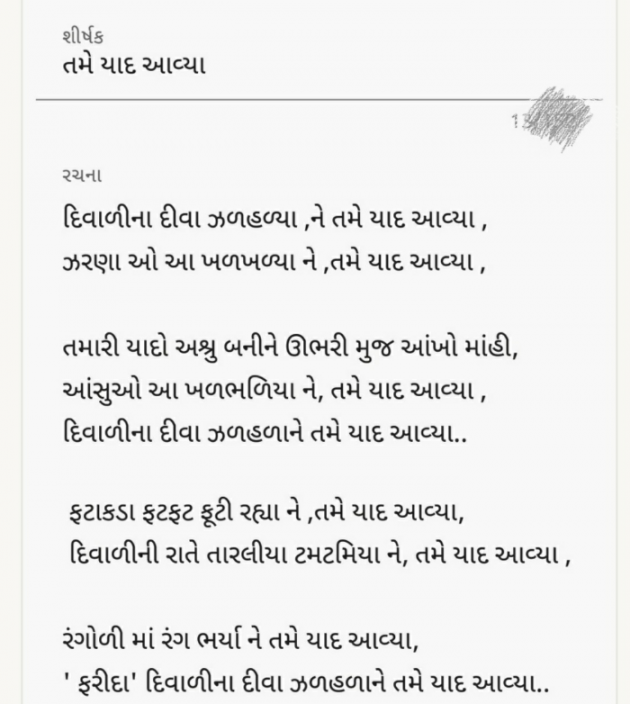 શીર્ષક
તમે યાદ આવ્યા
રચના
દિવાળીના દીવા ઝળહળ્યા ,ને તમે યાદ આવ્યા ,
ઝરણા ઓ આ ખળખળ્યા ને ,તમે યાદ આવ્યા ,
તમારી યાદો અશ્રુ બનીને ઊભરી મુજ આંખો માંહી,
આંસુઓ આ ખળભળિયા ને, તમે યાદ આવ્યા ,
દિવાળીના દીવા ઝળહળાને તમે યાદ આવ્યા..
ફટાકડા ફટફટ ફૂટી રહ્યા ને ,તમે યાદ આવ્યા,
દિવાળીની રાતે તારલીયા ટમટમિયા ને, તમે યાદ આવ્યા ,
રંગોળી માં રંગ ભર્યા ને તમે યાદ આવ્યા,
' ફરીદા' દિવાળીના દીવા ઝળહળાને તમે યાદ આવ્યા..